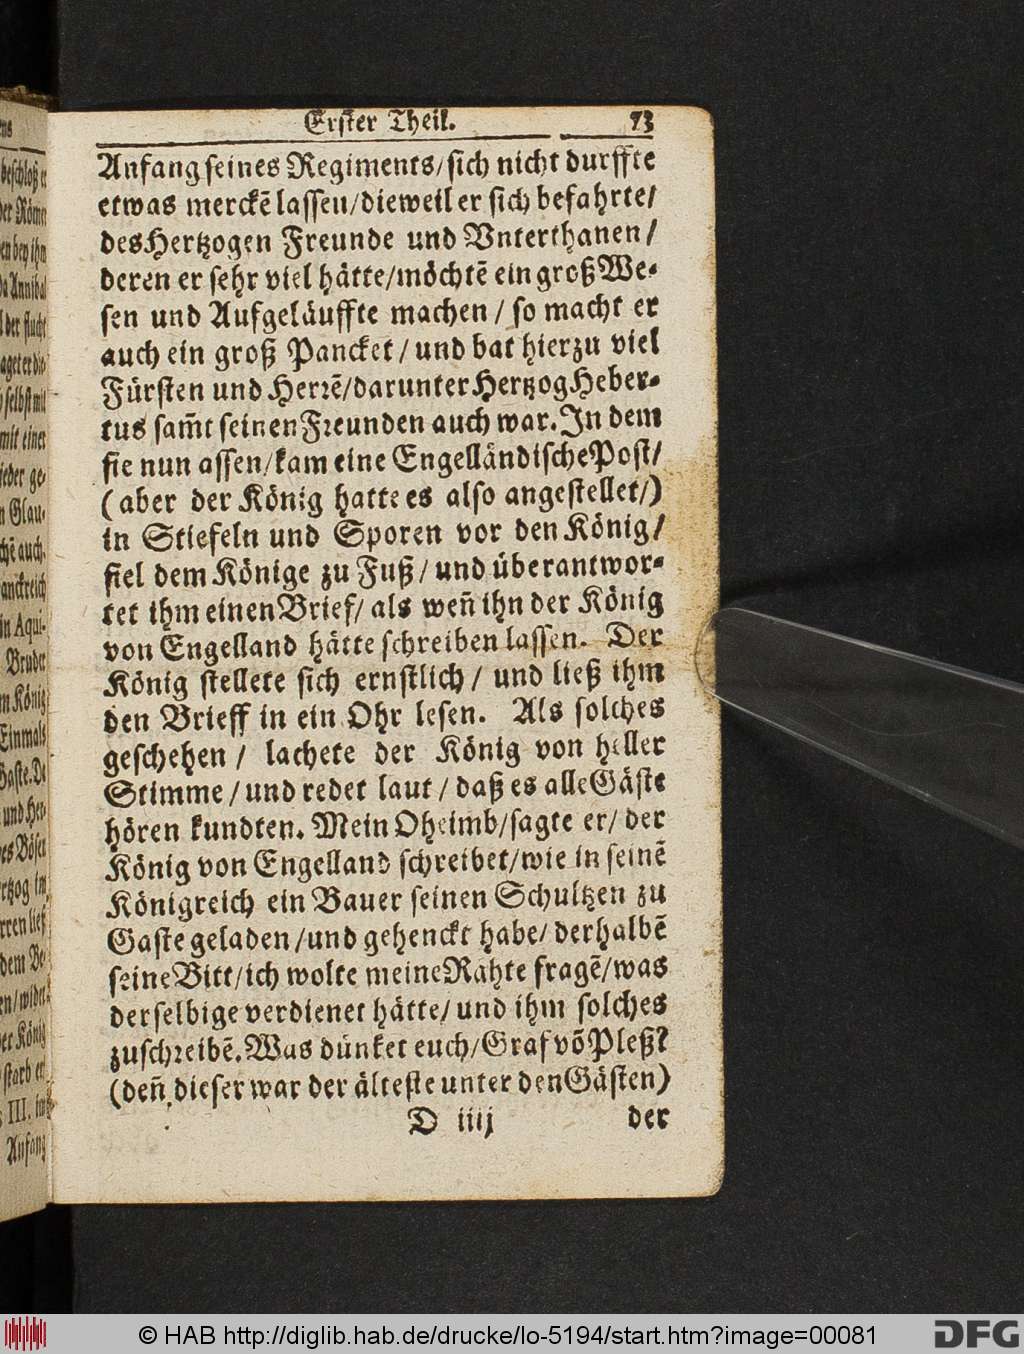 Erster Theil. 73
Anfang seines Regiments/ sich nicht durffte
etwas merckẽ lassen/ dieweil er sich befahrte/
des Hertzogen Freunde und Vnterthanen/
deren er sehr viel hätte/ möchtẽ ein groß We-
sen und Aufgeläuffte machen/ so macht er
auch ein groß Pancket/ und bat hierzu viel
Fürsten und Herrẽ/ darunter Hertzog Heber-
tus sam̃t seinen Freunden auch war. In dem
sie nun assen/ kam eine Engelländische Post/
(aber der König hatte es also angestellet/)
in Stiefeln und Sporen vor den König/
fiel dem Könige zu Fuß/ und überantwor-
tet ihm einen Brief/ als wen̄ ihn der König
von Engelland hätte schreiben lassen. Der
König stellete sich ernstlich/ und ließ ihm
den Brieff in ein Ohr lesen. Als solches
geschehen/ lachete der König von heller
Stimme/ und redet laut/ daß es alle Gäste
hören kundten. Mein Oheimb/ sagte er/ der
König von Engelland schreibet/ wie in seinẽ
Königreich ein Bauer seinen Schultzen zu
Gaste geladen/ und gehenckt habe/ derhalbẽ
seine Bitt/ ich wolte meine Rähte fragẽ/ was
derselbige verdienet hätte/ und ihm solches
zuschreibẽ. Was dünket euch/ Graf võ Pleß?
(den̄ dieser war der älteste unter den Gästen)
D iiij der
ens
beschloß er
der Römer
en bey ihm
da Annibal
l der flucht
aget er die
selbst mit
mit einer
ieder ge-
n Glau-
chẽ auch.
anckreich
in Aqui-
Bruder
m König
Einmals
Gaste. De
und Her-
es Bösen
rtzog im
rren ließ
dem Be-
en/ wider
er König
starb er
III. im
Anfang
© HAB http://diglib.hab.de/drucke/lo-5194/start.htm?image=00081
DFG